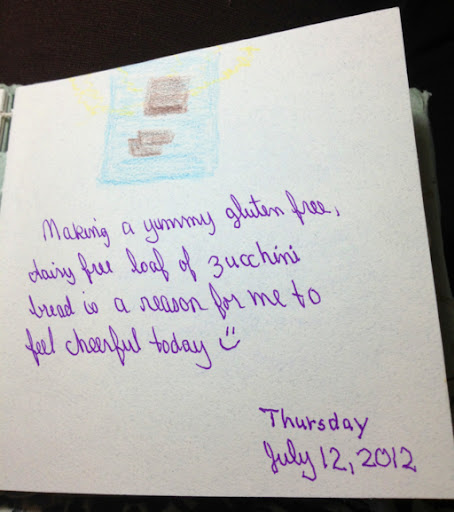 Making a yummy gluten free,
dairy free loaf of zucchini
bread is a reason for me to
feel cheerful today
Thursday
July 12, 2012